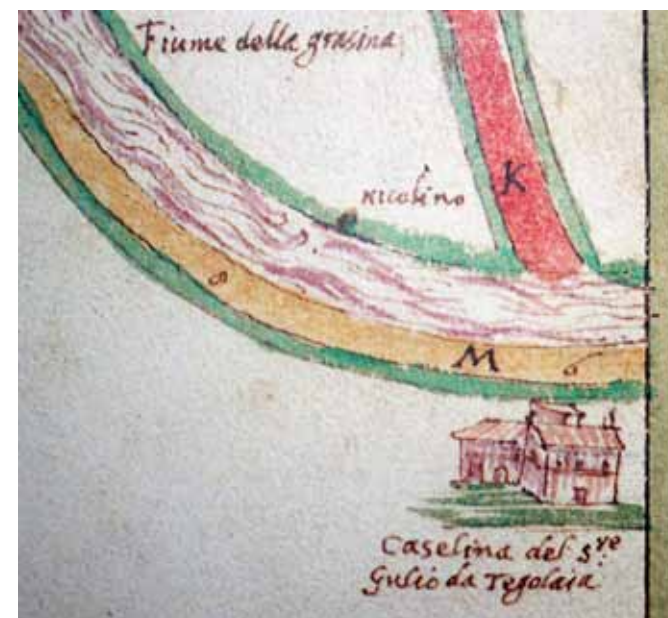 Fiume della grasina
K
nicolino
M
Caselina del s.re
Gulio da Tegolaia